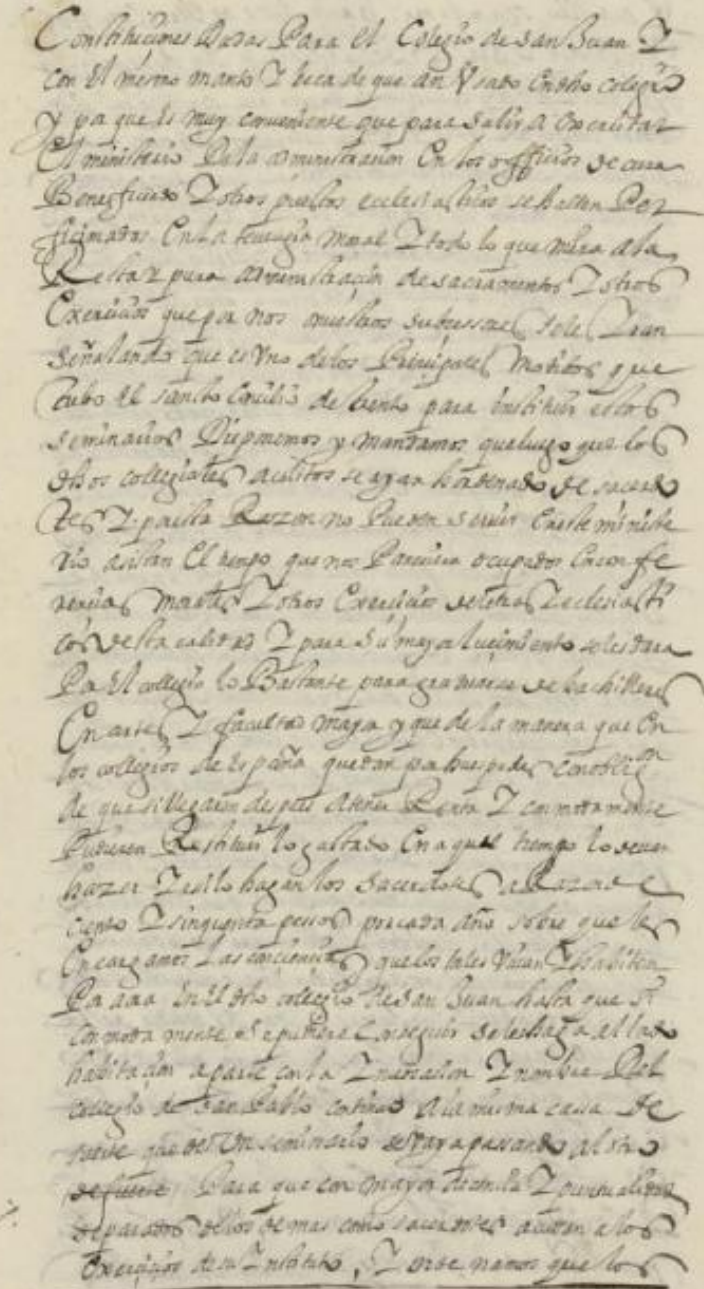 Constituciones dadas Para el Colegio de san Juan Y
con el mismo manto Y beca de que an Vsado En dho colegio
Y por que es muy conveniente que para salir a Exercitar
El ministerio De la administracion En los officios de cura
Beneficiado Y otros puestos eclesiasticos se hallen Per
ficionados En la teulogia moral Y todo lo que mira a la
Recta Y pura administracion de sacramentos Y otros
Exercicios que por nos nuestros subcessores se les Iran
señalando que es Vno de los Principales motibos que
tubo El sancto Concilio de trento para instituir estos
seminarios Disponemos y mandamos que luego que los
dhos collegiales acolitos se ayan hordenado de sacerdo
tes Y por esta Razon no Pueden seruir En este ministe
rio asistan El tiempo que nos Pareciere ocupados En confe
rencias morales Y otros Exercicios de letras Y eclesiasti
cos desta calidad Y para su mayor lucimiento se les dara
Por El collegio lo Bastante para graduarse de bachilleres
En artes Y facultad mayor y que de la manera que En
los collegios de España quedan por huespedes con oblig.on
de que si llegaren despues a tener Renta Y commodamente
Pudieren Restituir lo gastado En aquel tiempo lo deuen
hazer Y esto hagan los sacerdotes a Razon de
ciento Y sinquenta pessos por cada año sobre que les
Encargamos las conciencias y que los tales Viuan Y habiten
Por aora En El dho colegio de san Juan hasta que si
commodamente se pudiere Conseguir se les haga al lado
habitacion aparte con la Ynuocacion Y nombre Del
collegio de san Pablo contiguo a la misma cassa de
suerte que del Vn seminario se vaya passando al otro
de suerte Para que con mayor decencia Y puntualidad
separados de los demas como sacerdotes acudan a los
Exercicios de su Ynstituto, Y ordenamos que los